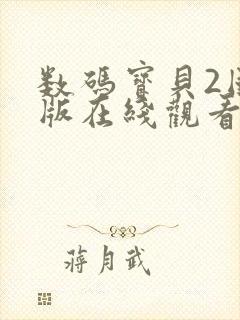 数碼寶貝2
版在綫觀看
蔣月武